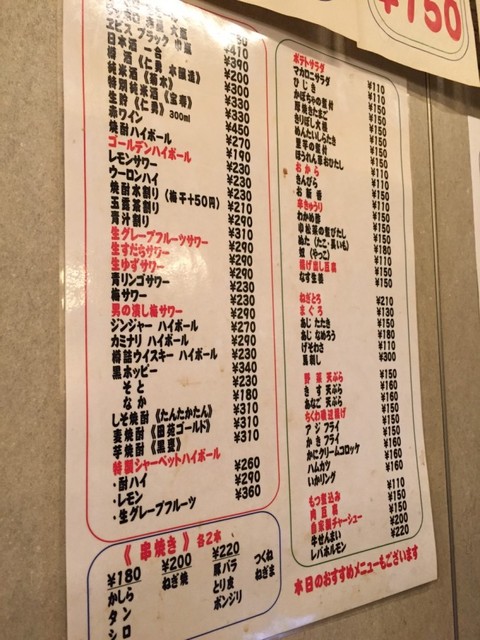 ¥750
エビス ブラック 中瓶 ¥410
日本酒 一合 ¥390
樽酒《仁勇 木醸造》 ¥200
純米酒《菊水》 ¥300
特別純米酒《宝寿》 ¥330
生貯《仁勇》300ml ¥330
赤ワイン ¥450
焼酎ハイボール ¥270
ゴールデンハイボール ¥190
レモンサワー ¥230
ウーロンハイ ¥230
焼酎水割り(梅干+50円) ¥230
玉露茶割り ¥210
青汁割り ¥290
生グレープフルーツサワー ¥310
生すだちサワー ¥290
生ゆずサワー ¥290
青リンゴサワー ¥290
梅サワー ¥230
男の潰し梅サワー ¥290
ジンジャー ハイボール ¥270
カミナリ ハイボール ¥290
樽詰ウイスキー ハイボール ¥230
黒ホッピー ¥340
そと ¥230
なか ¥180
しそ焼酎《たんたかたん》 ¥310
麦焼酎《田苑ゴールド》 ¥310
芋焼酎《黒甕》 ¥310
特製シャーベットハイボール
・酎ハイ ¥260
・レモン ¥290
・生グレープフルーツ ¥360
《 串焼き 》各2本
¥180
かしら
タン
シロ
¥200
ねぎ焼
¥220
豚バラ
とり食
ボンジリ
つくね
ねぎま
ポテトサラダ ¥110
マカロニサラダ ¥110
ひじき ¥110
かぼちゃの煮付
野焼きたまご
きりぼし大根
めんたいしらたき
里芋の煮付
ほうれん草おひたし
おから
きんぴら
お新香
辛きゅうり
わかめ酢
小松菜の煮びたし
ぬた(たこ・長いも)
奴(やっこ) ¥110
揚げ出し豆腐 ¥150
なす生姜 ¥150
ねぎとろ ¥210
まぐろ ¥130
あじ たたき ¥150
あじ なめろう ¥180
げそわさ ¥110
馬刺し ¥300
野菜 天ぷら ¥150
きす 天ぷら ¥160
あなご 天ぷら ¥160
ちくわ磯辺揚げ ¥150
アジ フライ ¥150
かき フライ ¥160
かにクリームコロッケ ¥160
ハムカツ ¥160
いかリング
もつ煮込み ¥110
肉豆腐 ¥150
自家製チャーシュー ¥150
牛せんまい ¥200
レバホルモン ¥220
本日のおすすめメニューもございます